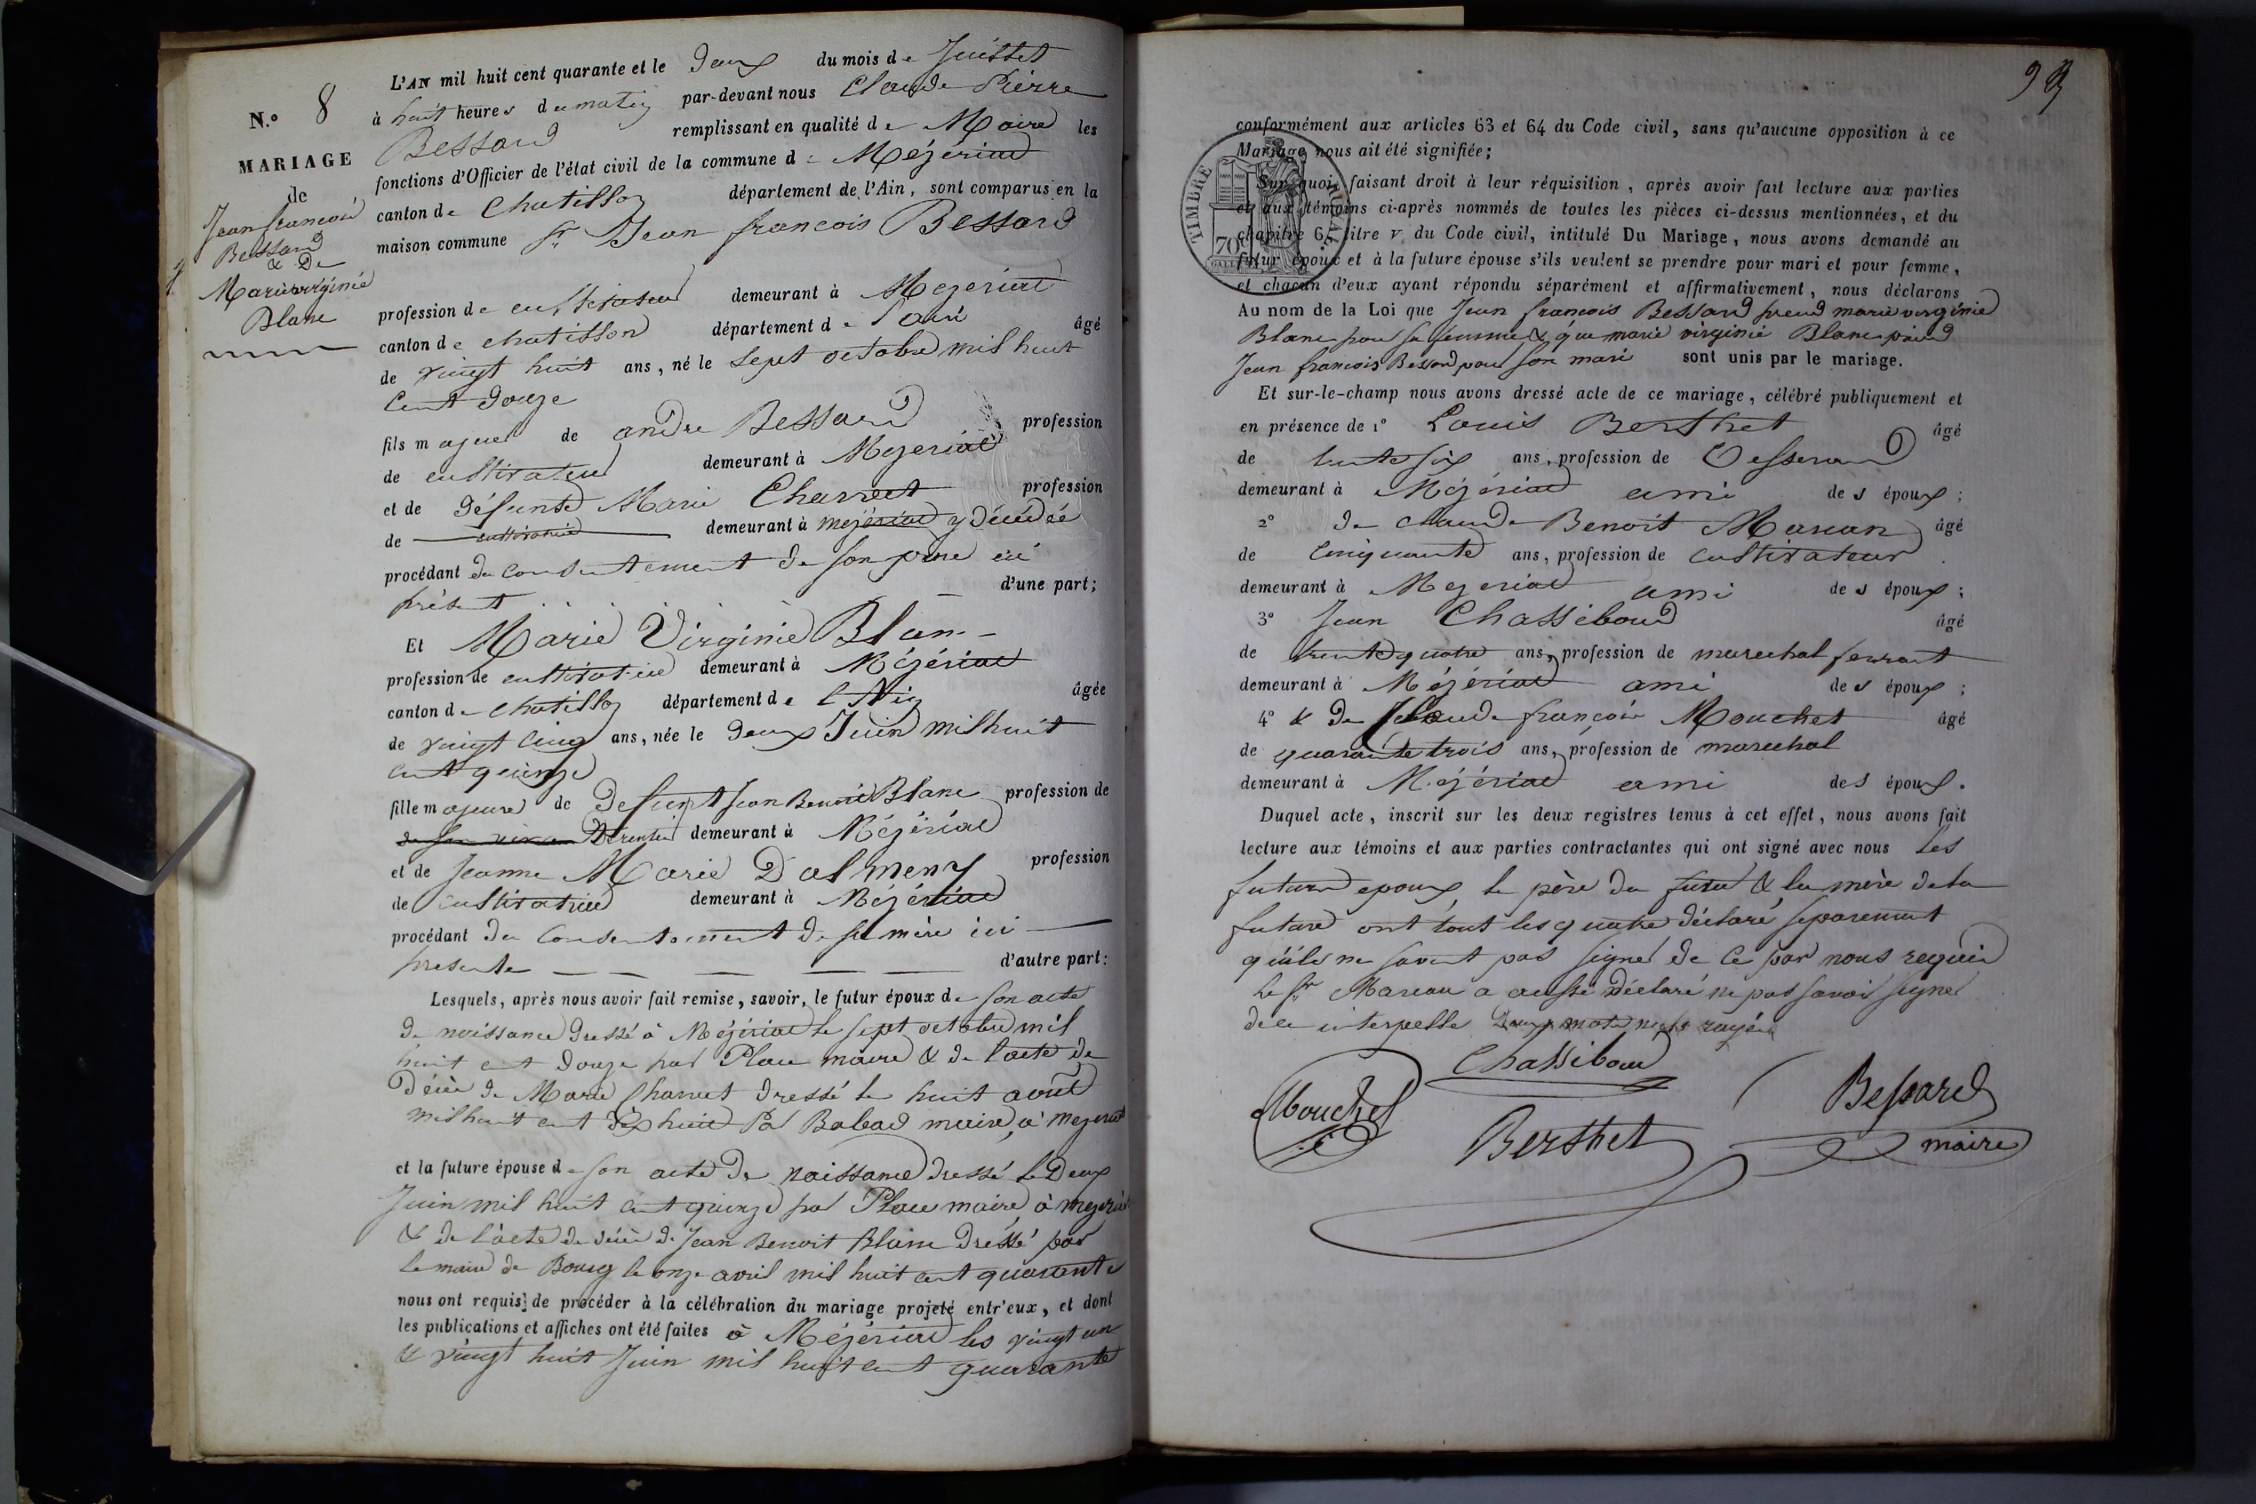 N.º 8
MARIAGE
de
Jean françois
Bessard
& De
Marie virginie
Blanc
L'AN mil huit cent quarante et le deux du mois de Juillet
à huit heures du matin par-devant nous Claude Pierre
Bessard remplissant en qualité de Maire les
fonctions d'Officier de l'état civil de la commune de Mézériat
canton de Chatillon département de l'Ain, sont comparus en la
maison commune Sr Jean francois Bessard
profession de cultivateur demeurant à Mezeriat
canton de chatillon département de l'ain âgé
de vingt huit ans, né le sept octobre mil huit
cent douze
fils majeur de andre Bessard profession
de cultivateur demeurant à Mezeriat
et de défunte Marie Charvet profession
de cultivatrice demeurant à mezériat y décédée
procédant du consentement de son père ici
présent d'une part;
Et Marie Virginie Blanc
profession de cultivatrice demeurant à Mézériat
canton de chatillon département de l'Ain âgée
de vingt cinq ans, née le deux Juin mil huit
cent quinze
fille majeure de defunt Jean Benoit Blanc profession de
demeurant à Mézériat
et de Jeanne Marie Dalmeny profession
de cultivatrice demeurant à Mézériat
procédant du consentement de sa mère ici
presente d'autre part:
Lesquels, après nous avoir fait remise, savoir, le futur époux de son acte
de naissance dressé à Mézériat le sept octobre mil
huit cent douze par Place maire & de l'acte de
décès de Marie Charvet dressé le huit août
mil huit cent dix huit Par Babad maire, à Mezeriat
et la future épouse de son acte de naissance dressé le Deux
Juin mil huit cent quinze par Place maire à mezeriat
& de l'acte de décès de Jean Benoit Blanc dressé par
le maire de Bourg le onze avril mil huit cent quarante
nous ont requis de procéder à la célébration du mariage projeté entr'eux, et dont
les publications et affiches ont été faites à Mézériat les vingt un
& vingt huit Juin mil huit cent quarante
conformément aux articles 63 et 64 du Code civil, sans qu'aucune opposition à ce
Mariage nous ait été signifiée;
TIMBRE ROYAL
70
Sur quoi, faisant droit à leur réquisition, après avoir fait lecture aux parties
et aux témoins ci-après nommés de toutes les pièces ci-dessus mentionnées, et du
chapitre 6, titre v du Code civil, intitulé Du Mariage, nous avons demandé au
futur époux et à la future épouse s'ils veulent se prendre pour mari et pour femme,
et chacun d'eux ayant répondu séparément et affirmativement, nous déclarons
Au nom de la Loi que Jean francois Bessard prend marie virginie
Blanc pour sa femme & que marie virginie Blanc prend
Jean francois Bessard pour son mari sont unis par le mariage.
Et sur-le-champ nous avons dressé acte de ce mariage, célébré publiquement et
en présence de 1º Louis Berthet âgé
de trente six ans, profession de
demeurant à Mézériat ami des époux;
2º de claude Benoit Marian âgé
de cinquante ans, profession de cultivateur
demeurant à Mezeriat ami des époux;
3º Jean Chassiboud âgé
de trente quatre ans, profession de marechal ferrant
demeurant à Mézériat ami des époux;
4º & de Claude françois Mouchet âgé
de quarante trois ans, profession de marechal
demeurant à Mézériat ami des époux.
Duquel acte, inscrit sur les deux registres tenus à cet effet, nous avons fait
lecture aux témoins et aux parties contractantes qui ont signé avec nous les
futurs epoux, le père du futur & la mère de la
future ont tout les quatre déclaré separement
qu'ils ne savent pas signer de ce par nous requis
le Sr Marian a aussi déclaré ne pas savoir signer
de ce interpellé deux mots nuls rayés
Chassiboud
Mouchet
Berthet
Bessard
maire